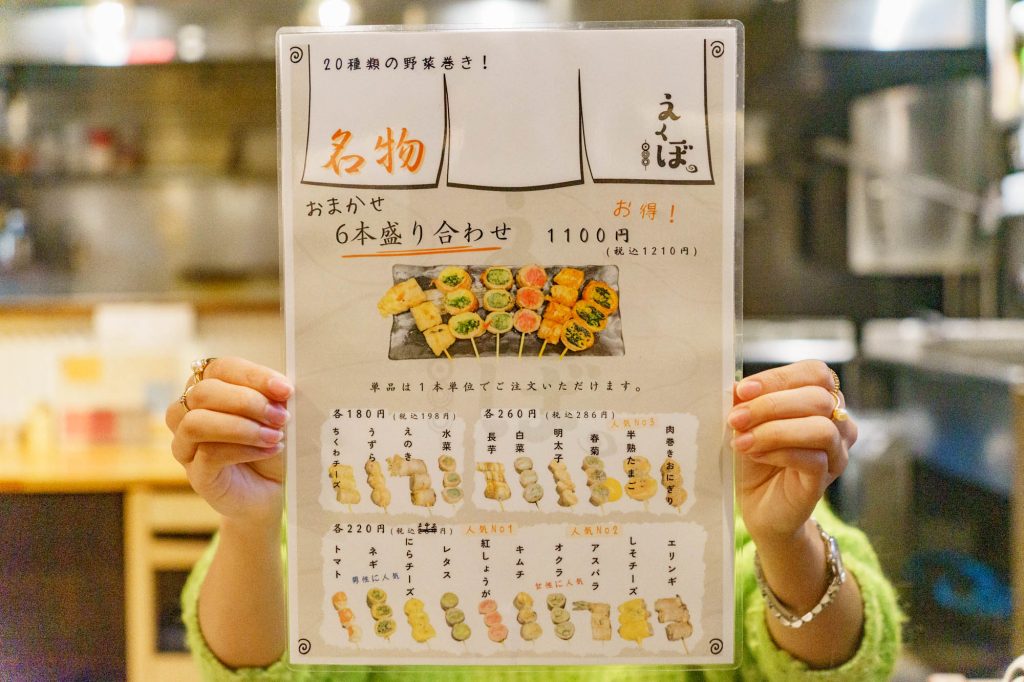 20種類の野菜巻き！
名物
えくぼ
おまかせ
6本盛り合わせ
お得！
1100円
(税込1210円)
単品は1本単位でご注文いただけます。
各180円 (税込198円)
ちくわチーズ
うずら
えのき
水菜
各260円 (税込286円)
人気No3
長芋
白菜
明太子
春菊
半熟たまご
肉巻きおにぎり
各220円
人気No1
人気No2
トマト
ネギ
男性に人気
にらチーズ
レタス
紅しょうが
キムチ
オクラ
女性に人気
アスパラ
しそチーズ
エリンギ